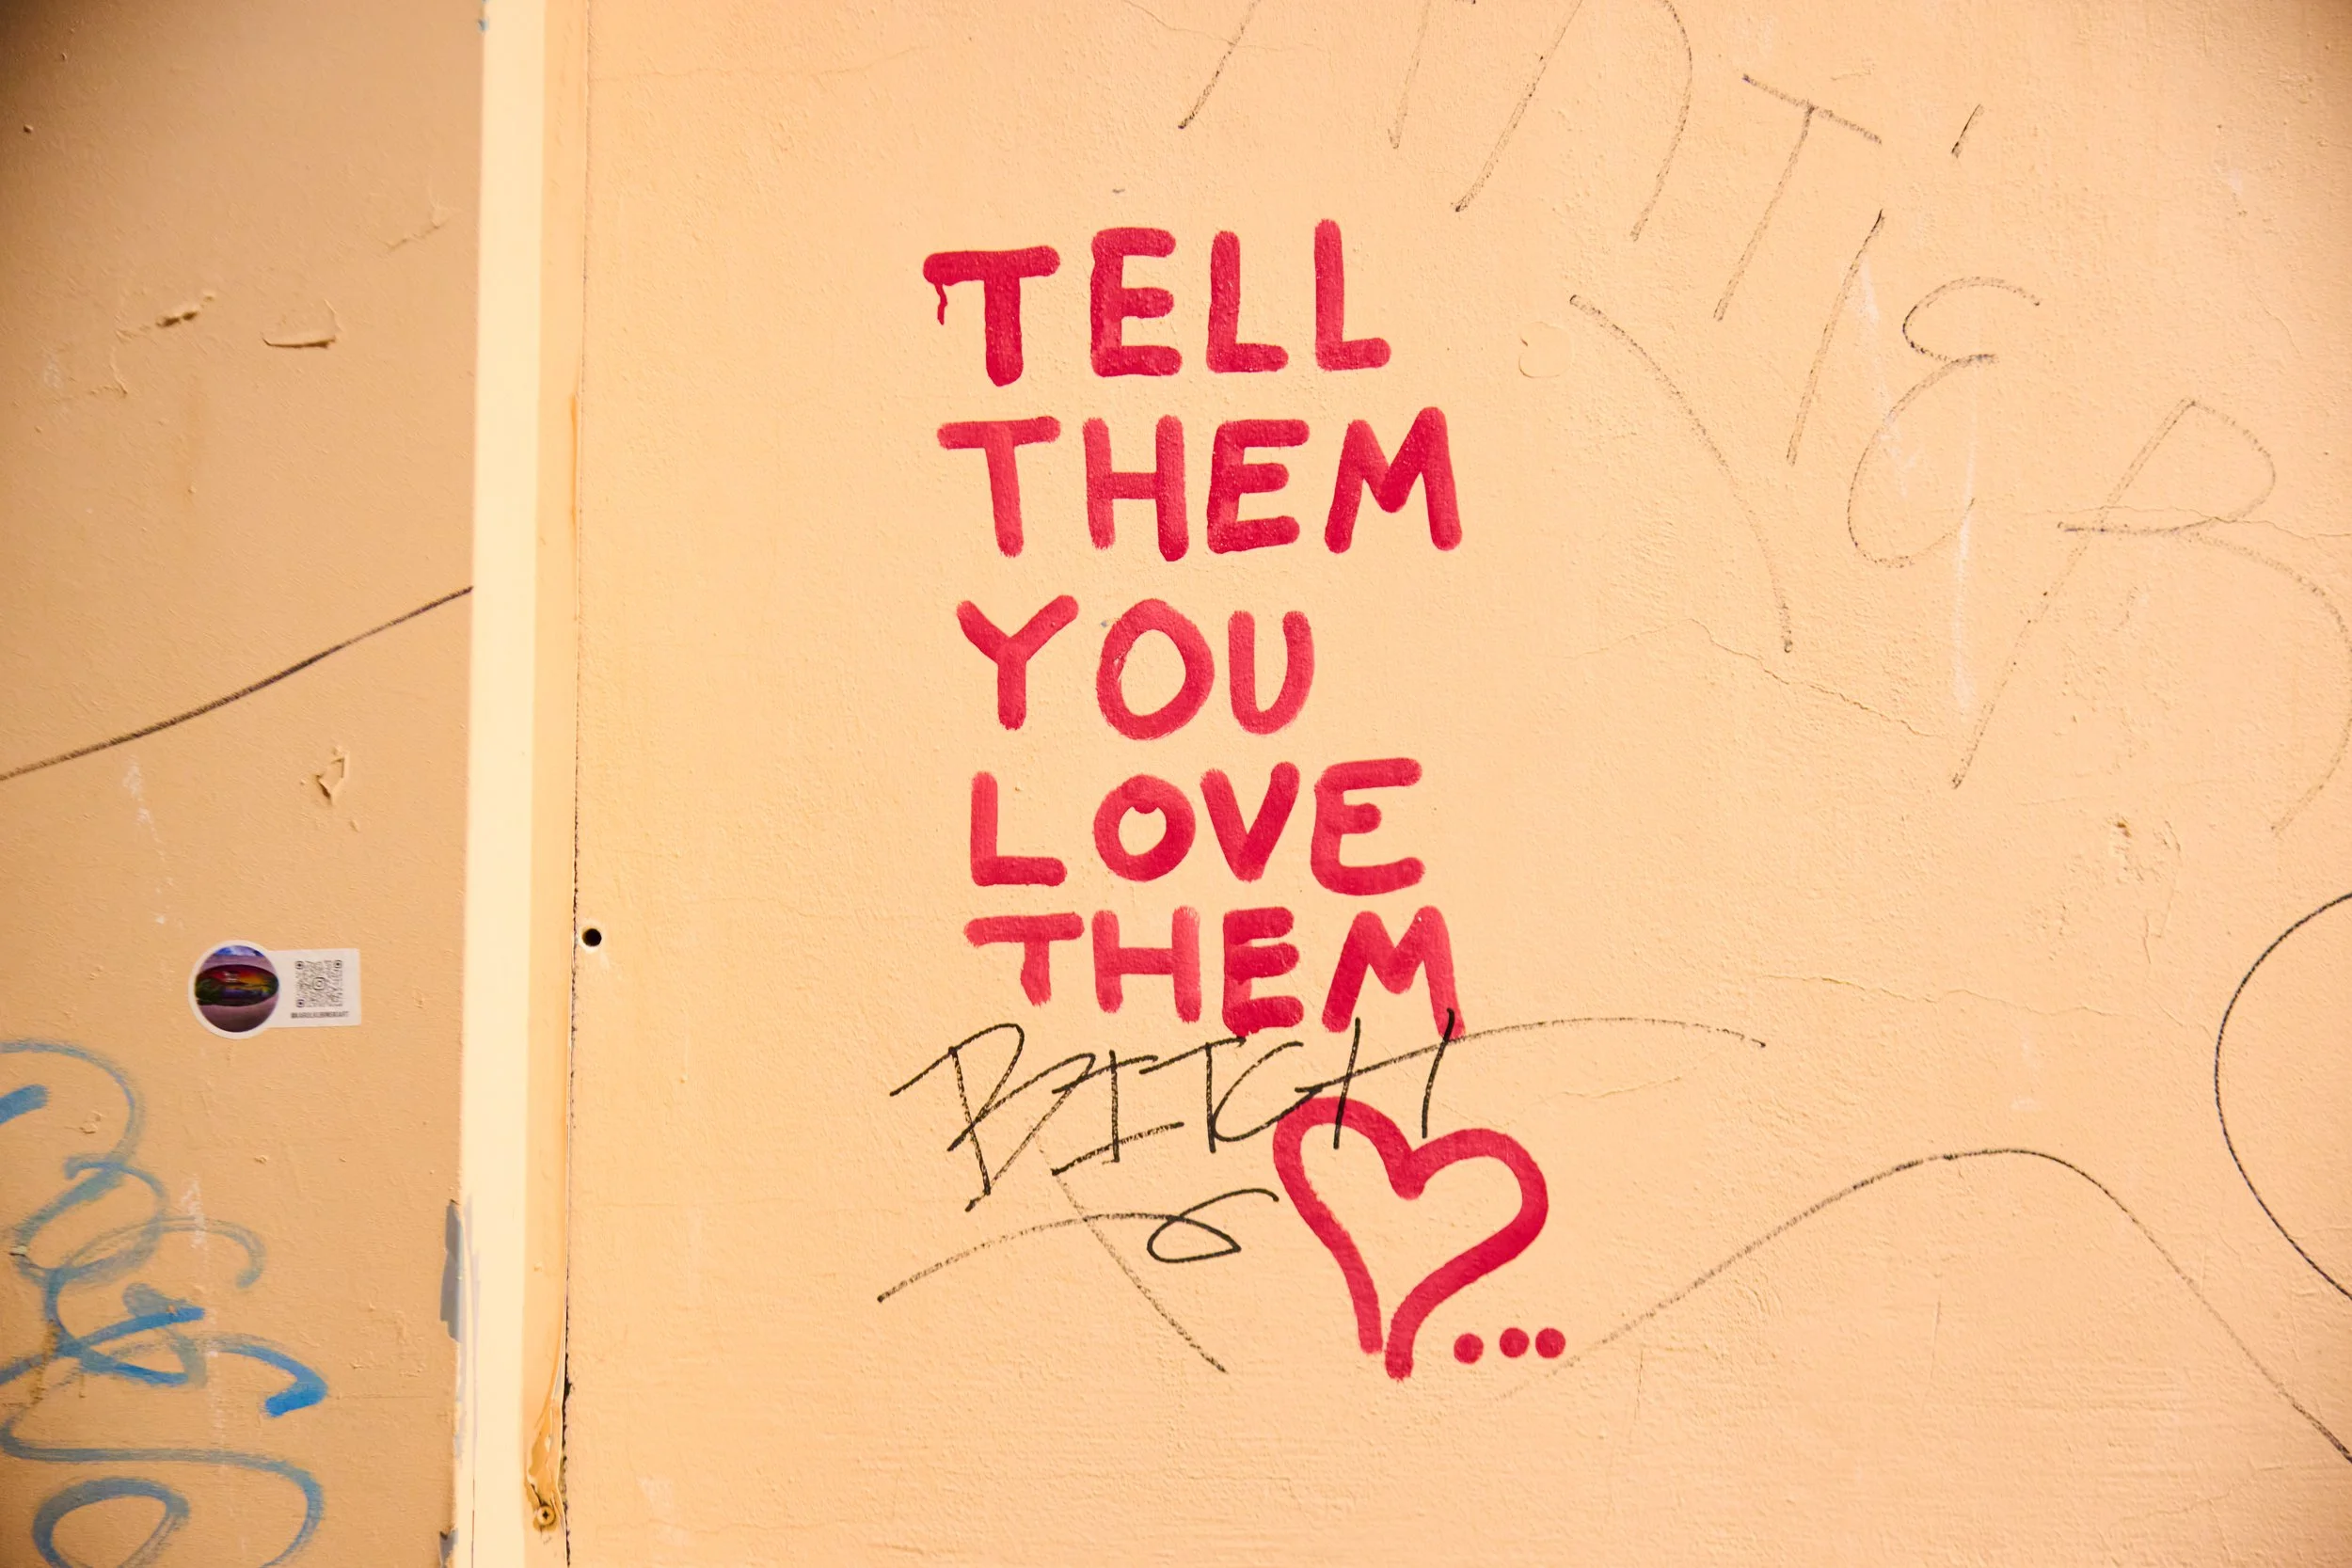 TELL
THEM
YOU
LOVE
THEM
BITCH
...